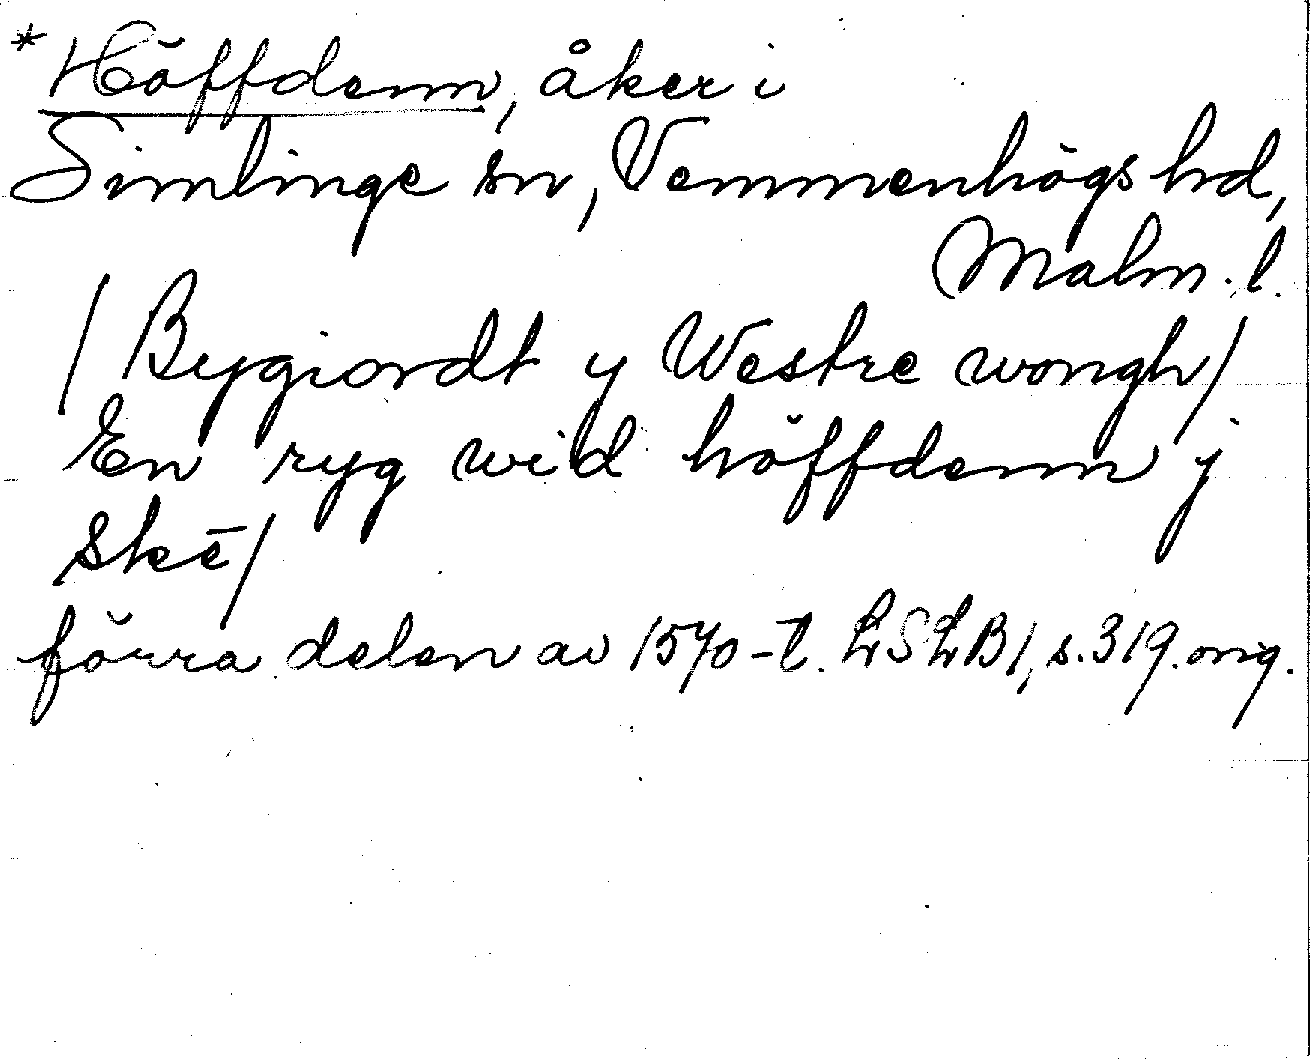 *Höffdenn, åker i
Simlinge sn, Vemmenhögs hd,
Malm. l.
/Bygiordt y Westre wongh/
En ryg wid höffdenn j
skē/
förra delen av 1570-t. LSLB1, s. 319. orig.